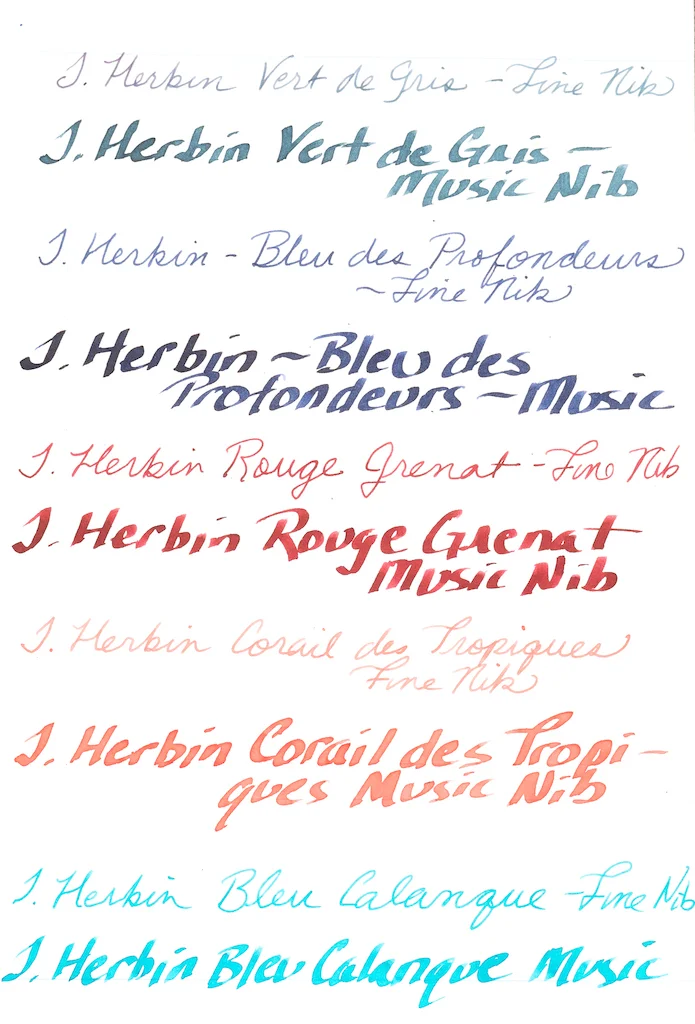 J. Herbin Vert de Gris - Fine Nib
J. Herbin Vert de Gris -
Music Nib
J. Herbin - Bleu des Profondeurs
~ Fine Nib
J. Herbin ~ Bleu des
Profondeurs ~ Music
J. Herbin Rouge Grenat - Fine Nib
J. Herbin Rouge Grenat
Music Nib
J. Herbin Corail des Tropiques
Fine Nib
J. Herbin Corail des Tropi-
ques Music Nib
J. Herbin Bleu Calanque - Fine Nib
J. Herbin Bleu Calanque Music